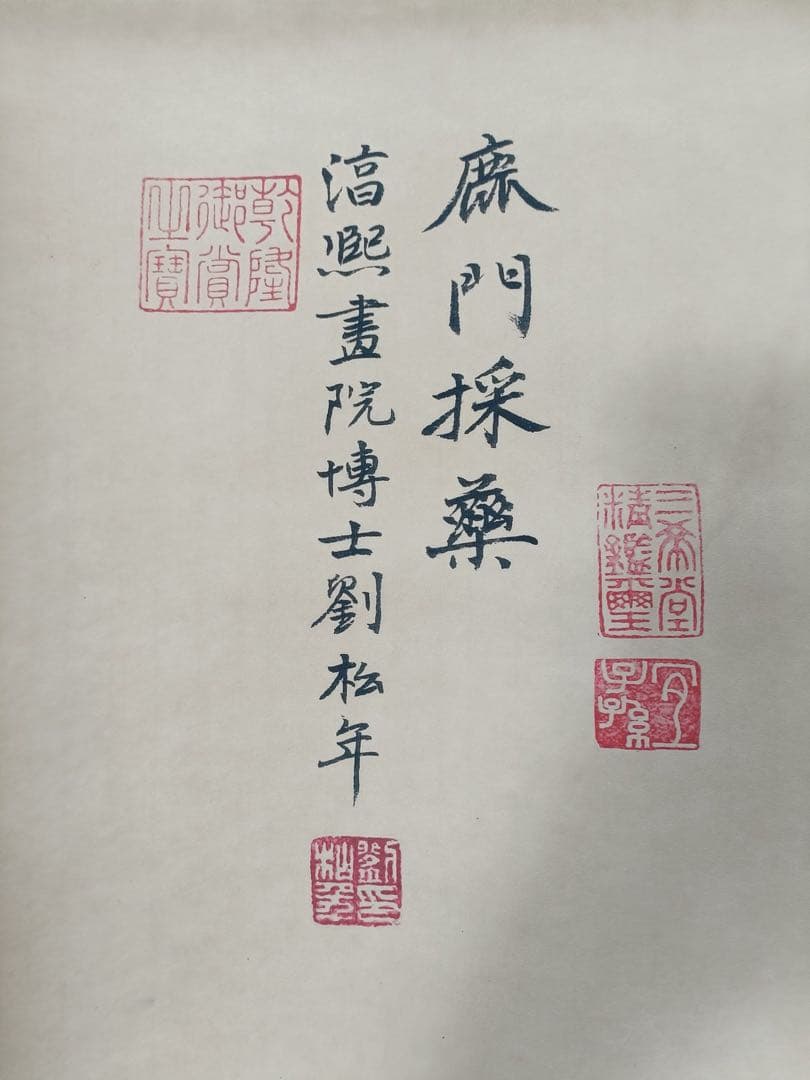 三希堂
精鑑璽
宜
子孫
鹿門採藥
湻熙畫院博士劉松年
劉印
松年
乾隆
御賞
之寶